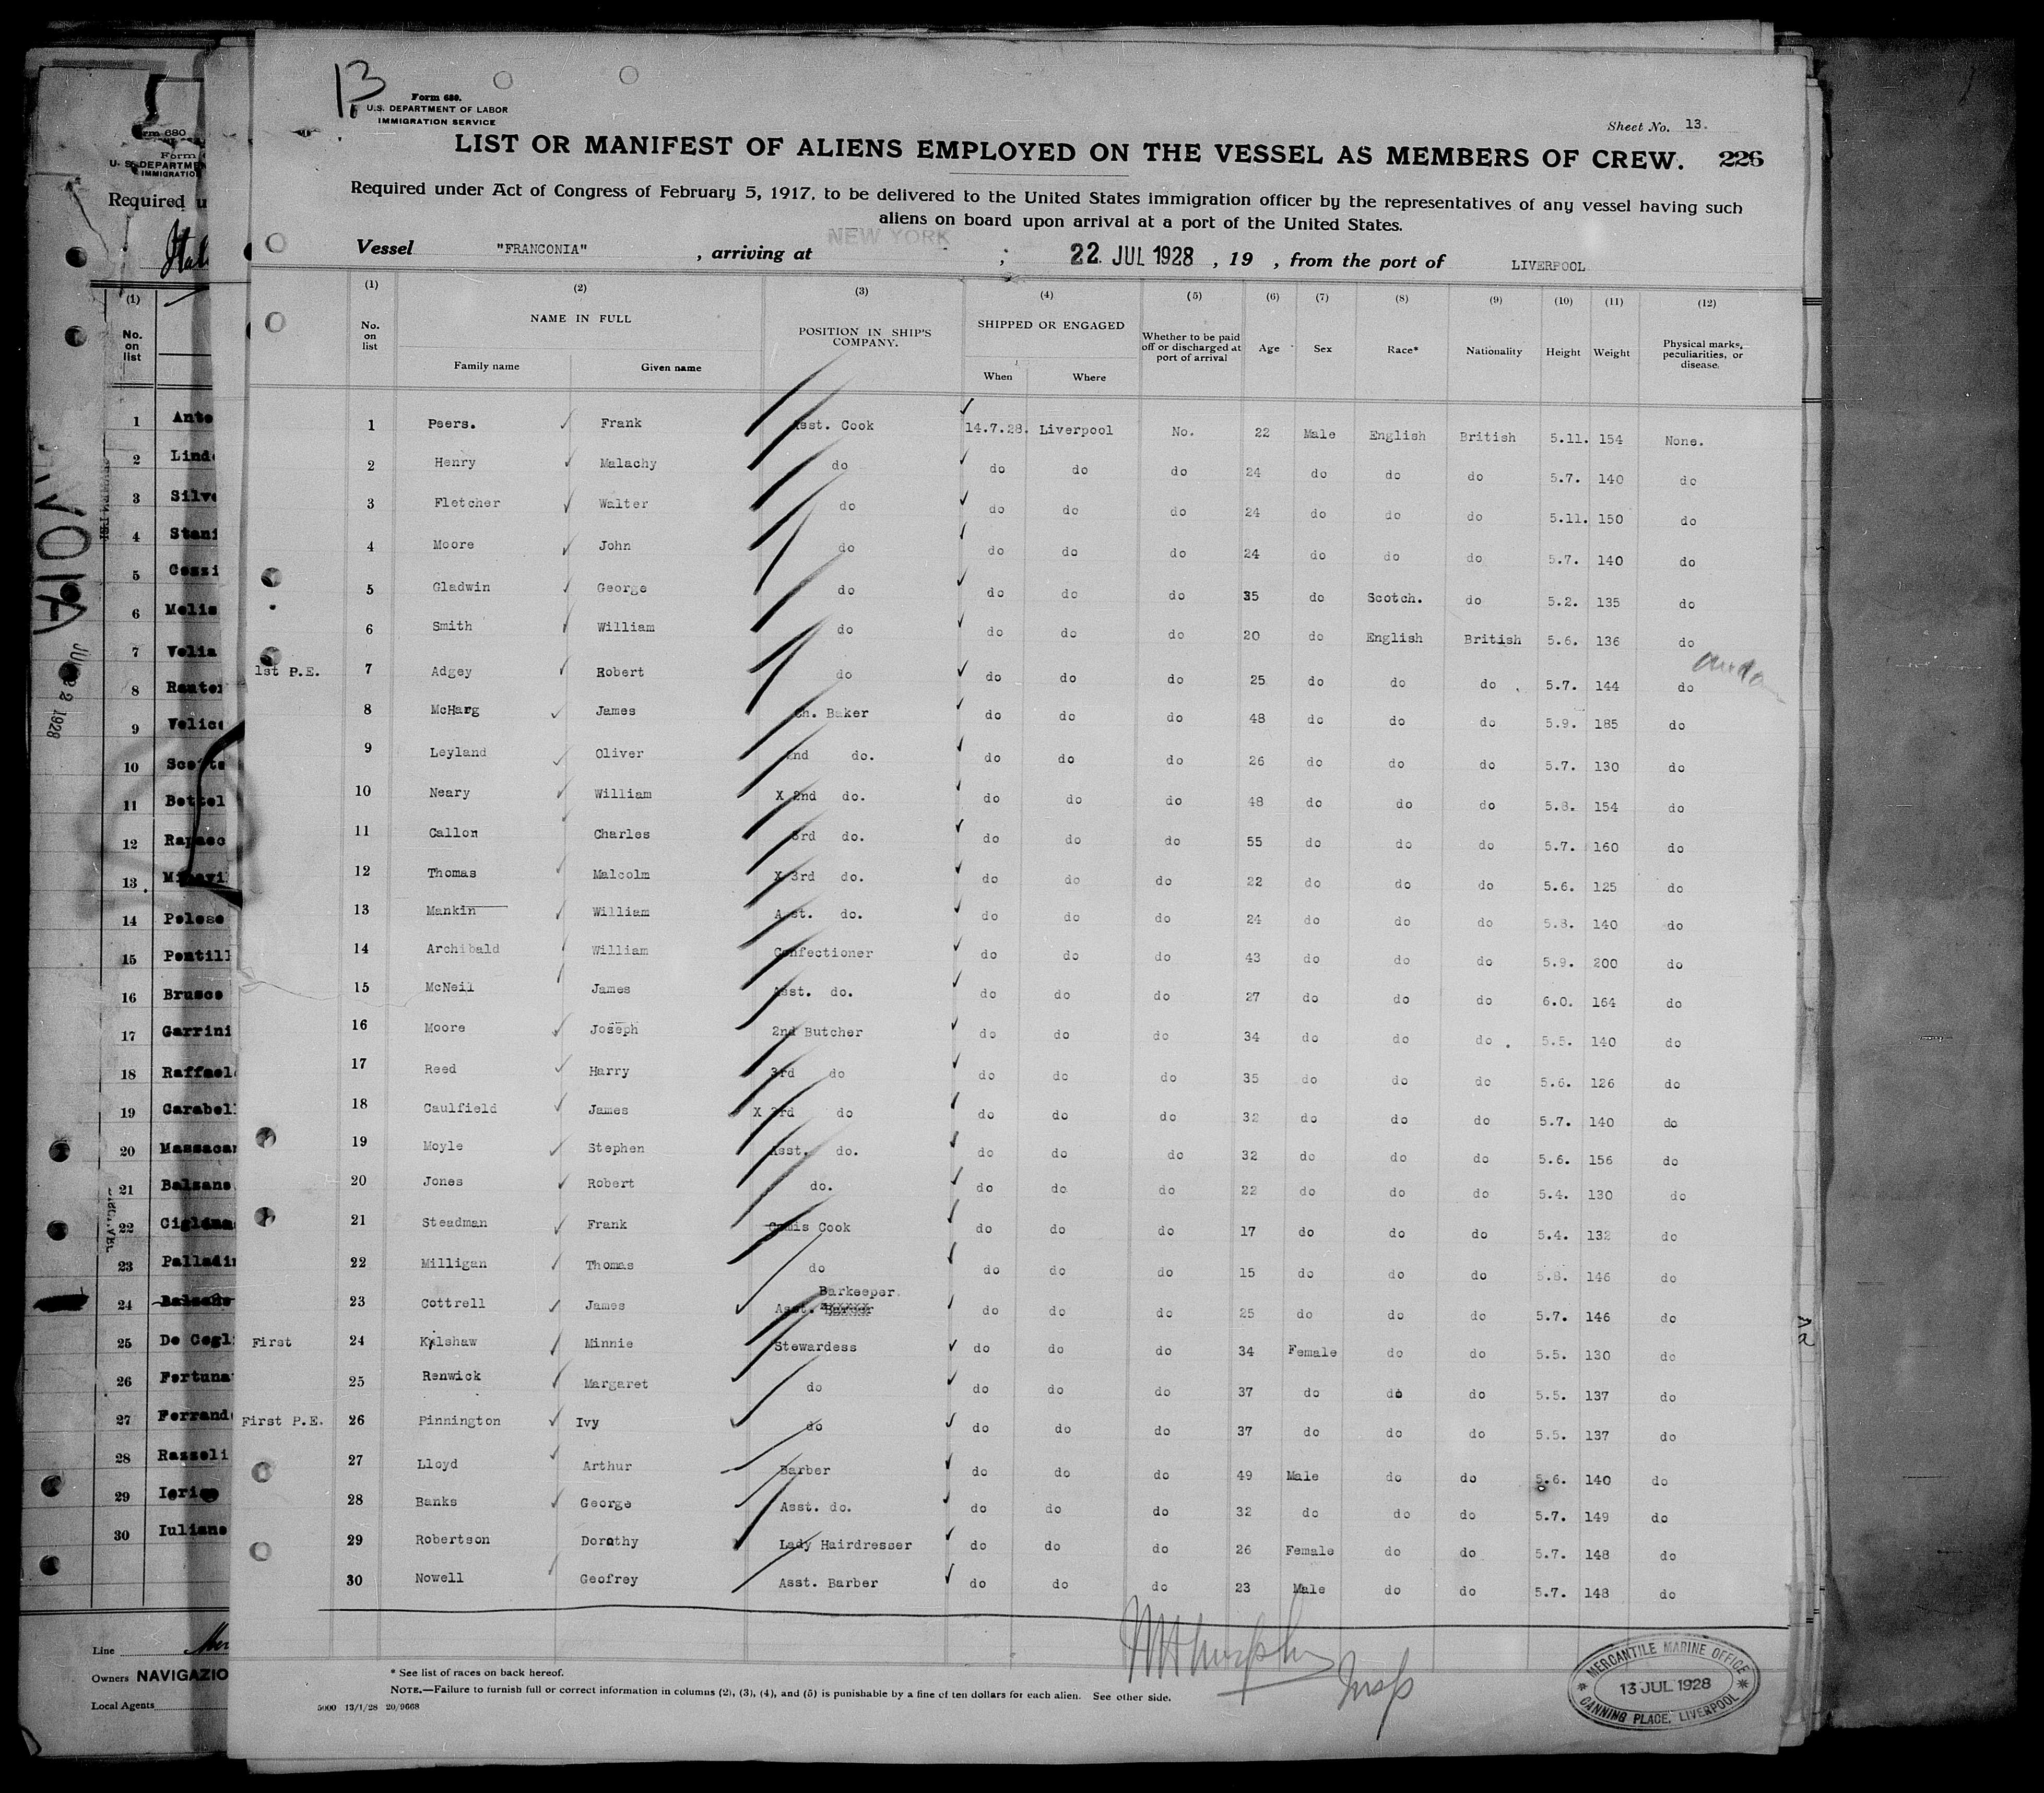 13
Form 680.
U.S. DEPARTMENT OF LABOR
IMMIGRATION SERVICE
Sheet No. 13.
LIST OR MANIFEST OF ALIENS EMPLOYED ON THE VESSEL AS MEMBERS OF CREW. 226
Required under Act of Congress of February 5, 1917, to be delivered to the United States immigration officer by the representatives of any vessel having such
aliens on board upon arrival at a port of the United States.
Vessel "FRANCONIA" , arriving at NEW YORK ; 22 JUL 1928 , 19 , from the port of LIVERPOOL
(1) (2) (3) (4) (5) (6) (7) (8) (9) (10) (11) (12)
No. on list NAME IN FULL Family name Given name POSITION IN SHIP'S COMPANY. SHIPPED OR ENGAGED When Where Whether to be paid off or discharged at port of arrival Age Sex Race* Nationality Height Weight Physical marks, peculiarities, or disease.
1 Peers. Frank Asst. Cook 14.7.28. Liverpool No. 22 Male English British 5.11. 154 None.
2 Henry Malachy do do do do 24 do do do 5.7. 140 do
3 Fletcher Walter do do do do 24 do do do 5.11. 150 do
4 Moore John do do do do 24 do do do 5.7. 140 do
5 Gladwin George do do do do 35 do Scotch. do 5.2. 135 do
6 Smith William do do do do 20 do English British 5.6. 136 do
1st P.E. 7 Adgey Robert do do do do 25 do do do 5.7. 144 do
8 McHarg James Ch. Baker do do do 48 do do do 5.9. 185 do
9 Leyland Oliver 2nd do. do do do 26 do do do 5.7. 130 do
10 Neary William X 2nd do. do do do 48 do do do 5.8. 154 do
11 Callon Charles 3rd do. do do do 55 do do do 5.7. 160 do
12 Thomas Malcolm X 3rd do. do do do 22 do do do 5.6. 125 do
13 Mankin William Asst. do. do do do 24 do do do 5.8. 140 do
14 Archibald William Confectioner do do do 43 do do do 5.9. 200 do
15 McNeil James Asst. do. do do do 27 do do do 6.0. 164 do
16 Moore Joseph 2nd Butcher do do do 34 do do do 5.5. 140 do
17 Reed Harry 3rd do do do do 35 do do do 5.6. 126 do
18 Caulfield James X 3rd do do do do 32 do do do 5.7. 140 do
19 Moyle Stephen Asst. do. do do do 32 do do do 5.6. 156 do
20 Jones Robert do. do do do 22 do do do 5.4. 130 do
21 Steadman Frank Comis Cook do do do 17 do do do 5.4. 132 do
22 Milligan Thomas do do do do 15 do do do 5.8. 146 do
23 Cottrell James Asst. Barkeeper do do do 25 do do do 5.7. 146 do
First 24 Kilshaw Minnie Stewardess do do do 34 Female do do 5.5. 130 do
25 Renwick Margaret do do do do 37 do do do 5.5. 137 do
First P.E. 26 Pinnington Ivy do do do do 37 do do do 5.5. 137 do
27 Lloyd Arthur Barber do do do 49 Male do do 5.6. 140 do
28 Banks George Asst. do. do do do 32 do do do 5.7. 149 do
29 Robertson Dorothy Lady Hairdresser do do do 26 Female do do 5.7. 148 do
30 Nowell Geofrey Asst. Barber do do do 23 Male do do 5.7. 148 do
Insp
* See list of races on back hereof.
NOTE.—Failure to furnish full or correct information in columns (2), (3), (4), and (5) is punishable by a fine of ten dollars for each alien. See other side.
5000 13/1/28 20/9668
MERCANTILE MARINE OFFICE
13 JUL 1928
CANNING PLACE, LIVERPOOL
U.S. DEPARTME
IMMIGRATIO
Required u
(1)
No. on list
1 Ante
2 Lind
3 Silve
4 Stani
5 Cozzi
6 Melis
7 Velia
8
9 Velice
10
11 Bettol
12
13
14 Pelose
15 Pentill
16 Brusco
17 Garrini
18 Raffaele
19 Carabell
20 Massacar
21 Balsano
22
23 Palladin
24
25 De Cegl
26 Fortuna
27 Ferrand
28 Rasseli
29
30 Iuliano
Line
Owners NAVIGAZIO
Local Agents